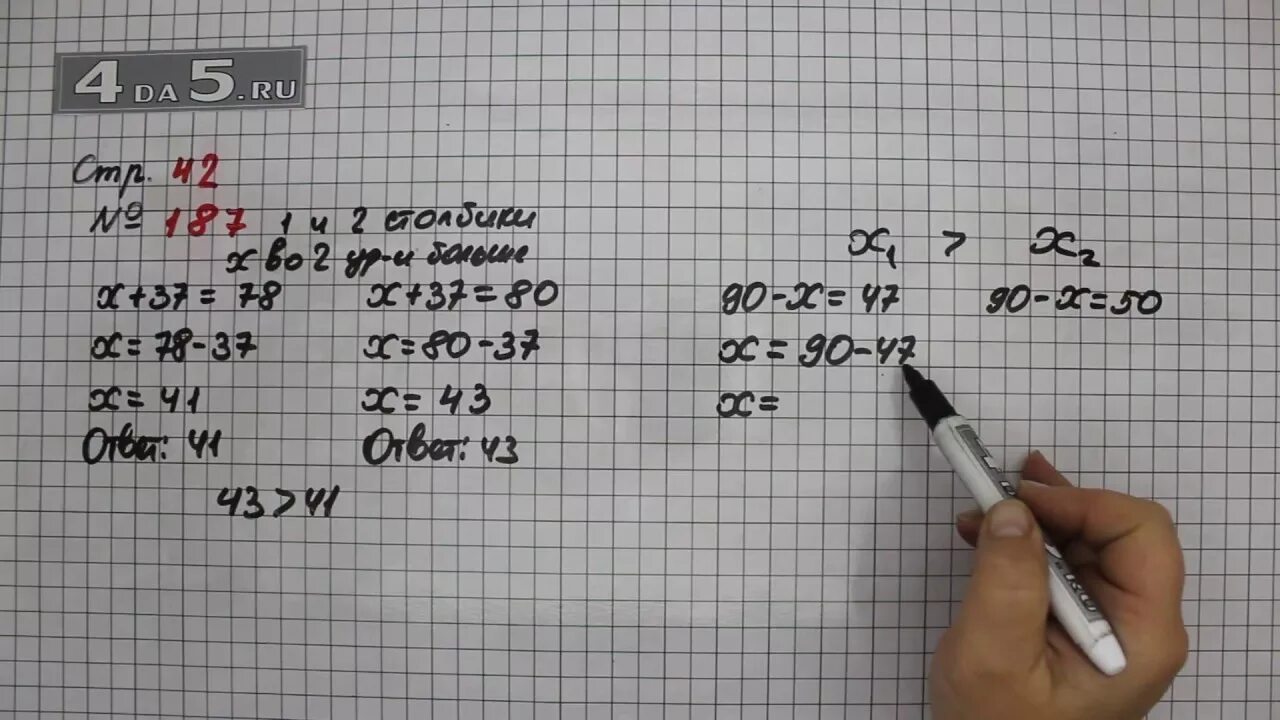 4 DA 5.RU
Стр. 42
№ 187 1 и 2 столбики
х во 2 ур-и больше
х+37=78
х=78-37
х=41
Ответ: 41
х+37=80
х=80-37
х=43
Ответ: 43
43>41
х₁ > х₂
90-х=47
х=90-47
х=
90-х=50